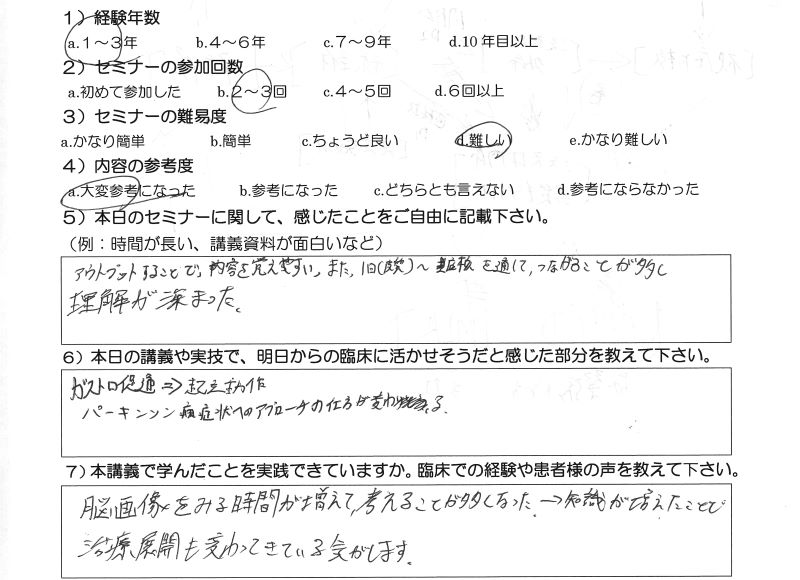 1）経験年数
a.1～3年 b.4～6年 c.7～9年 d.10年目以上
2）セミナーの参加回数
a.初めて参加した b.2～3回 c.4～5回 d.6回以上
3）セミナーの難易度
a.かなり簡単 b.簡単 c.ちょうど良い d.難しい e.かなり難しい
4）内容の参考度
a.大変参考になった b.参考になった c.どちらとも言えない d.参考にならなかった
5）本日のセミナーに関して、感じたことをご自由に記載下さい。
（例：時間が長い、講義資料が面白いなど）
アウトプットすることで、内容を覚えやすい。また、1回(皮質)～ を通して、つながることが多く
理解が深まった。
6）本日の講義や実技で、明日からの臨床に活かせそうだと感じた部分を教えて下さい。
促通⇒起立動作
パーキンソン病症状へのアプローチの仕方が変わる。
7）本講義で学んだことを実践できていますか。臨床での経験や患者様の声を教えて下さい。
脳画像をみる時間が増えて、考えることが多くなった。→知識が増えたことで
治療展開も変わってきている気がします。